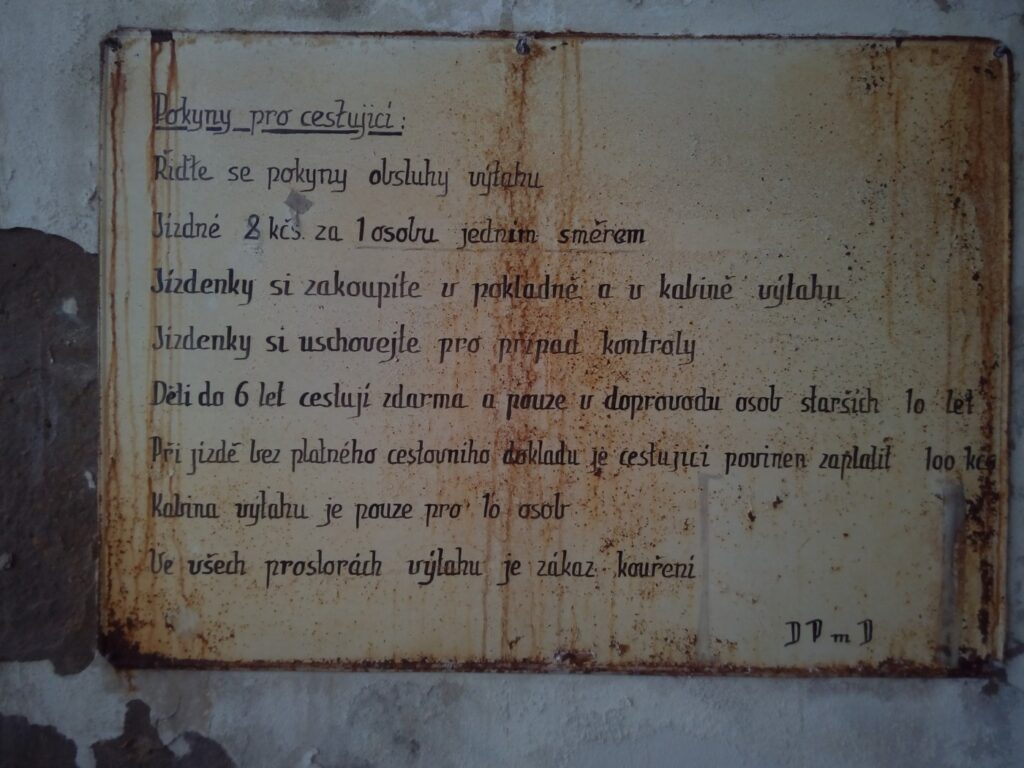 Pokyny pro cestující:
Řiďte se pokyny obsluhy výtahu
Jízdné 2 kčs. za 1 osobu jedním směrem
Jízdenky si zakoupíte v pokladně a v kabině výtahu
Jízdenky si uschovejte pro případ kontroly
Děti do 6 let cestují zdarma a pouze v doprovodu osob starších 10 let
Při jízdě bez platného cestovního dokladu je cestující povinen zaplatit 100 kčs
Kabina výtahu je pouze pro 10 osob
Ve všech prostorách výtahu je zákaz kouření
D P m D